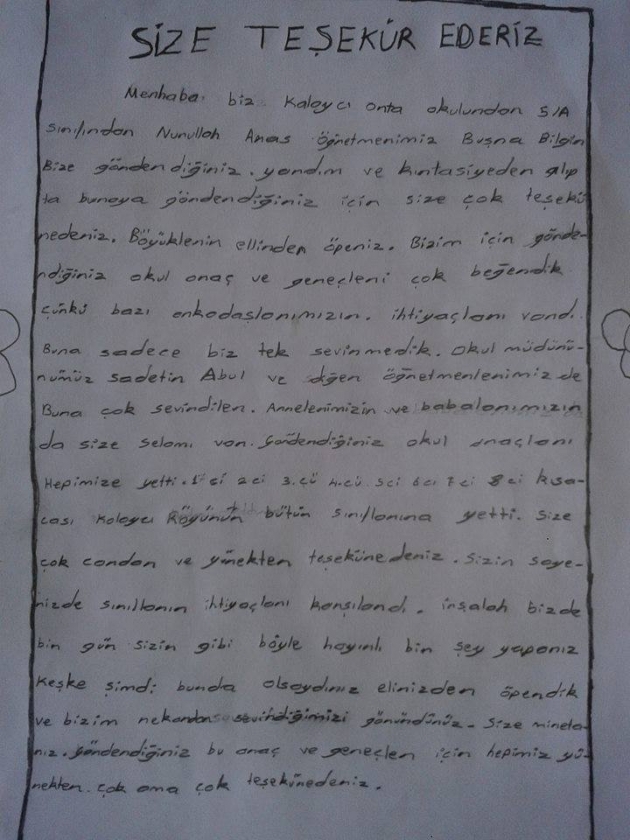 SİZE TEŞEKÜR EDERİZ
Merhaba. biz Kalaycı orta okulundan 5/A
sınıfından Nurullah Aras öğretmenimiz Buşra Bilgin
Bize gönderdiğiniz. yardım ve kırtasiyeden alıp
ta buraya gönderdiğiniz için size çok teşekü
rederiz. Böyüklerin ellinden öperiz. Bizim için gönde-
rdiğiniz okul araç ve gereçleri çok beğendik
çünkü bazı arkadaşlarımızın. ihtiyaçları vardı.
Buna sadece biz tek sevinmedik. okul müdürü-
rümüz sadetin Abul ve diğer öğretmenlerimiz de
Buna çok sevindiler. Annelerimizin ve babalarımızın
da size selamı var. gönderdiğiniz okul araçları
Hepimize yetti. 1'ci 2ci 3.cü 4.cü 5ci 6cı 7ci 8ci kısa-
cası Kalaycı Köyünün bütün sınıflarına yetti. size
çok candan ve yürekten teşekürederiz. Sizin saye-
nizde sınıfların ihtiyaçları karşılandı. inşalah bizde
bir gün sizin gibi böyle hayırlı bir şey yaparız
keşke şimdi burda olsaydınız elinizden öperdik
ve bizim nekadar sevindiğimizi görürdünüz. Size mineta-
rız. gönderdiğiniz bu araç ve gereçler için hepimiz yü-
rekten. çok ama çok teşekürederiz.